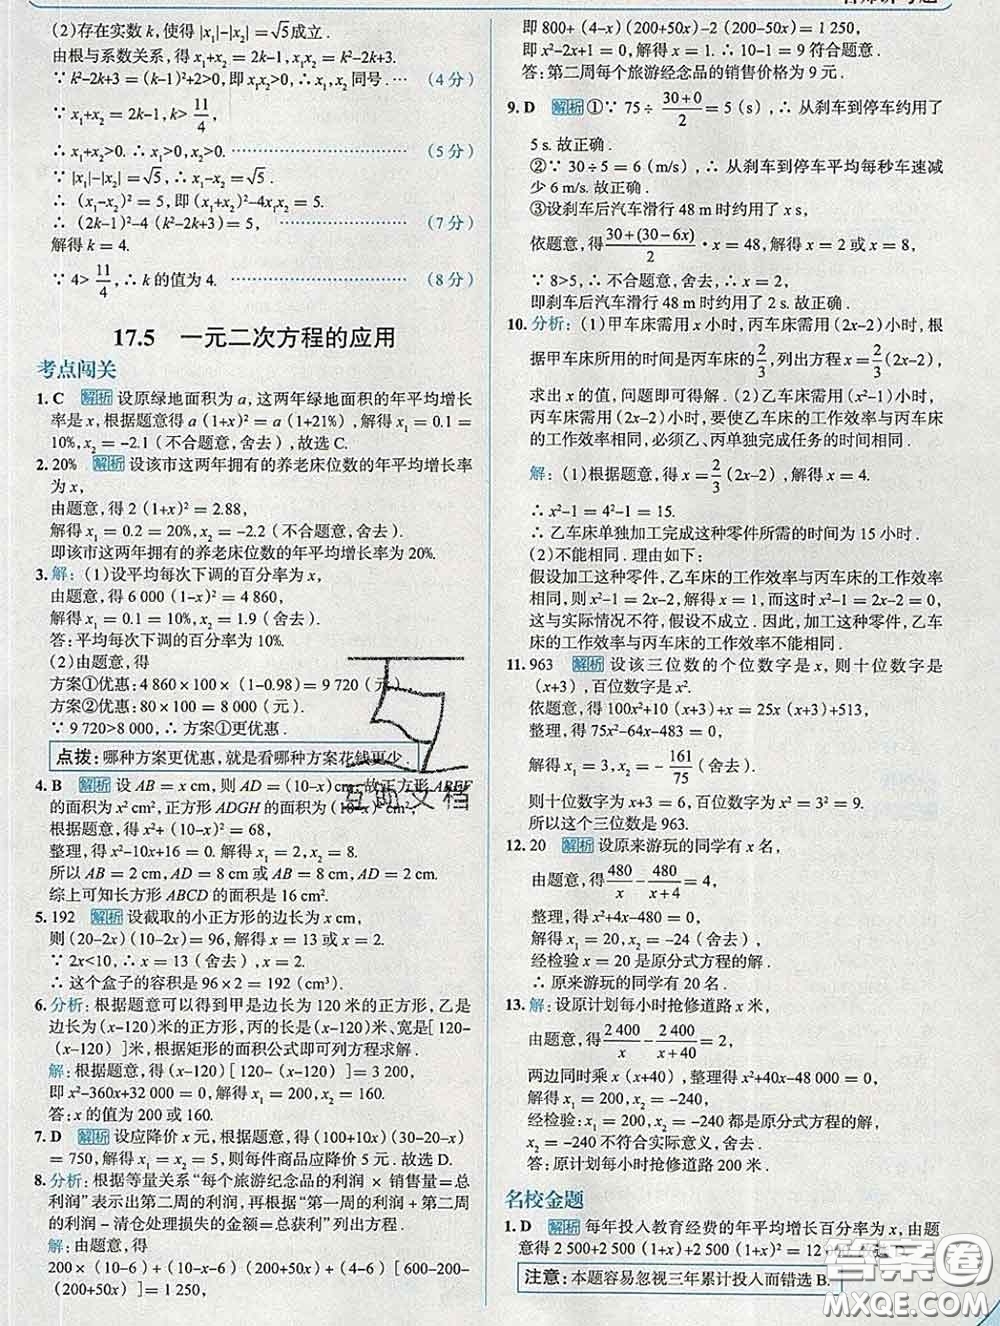 (2)存在实数 k, 使得 |x₁|-|x₂|=√5成立.
由根与系数关系, 得 x₁+x₂ = 2k-1, x₁x₂ = k²-2k+3.
∵ k²-2k+3=(k-1)²+2>0, 即 x₁x₂>0, ∴ x₁, x₂同号. … (4 分)
∵ x₁+x₂ = 2k-1, k>11/4,
∴ x₁+x₂>0. ∴ x₁>0, x₂>0. ………… (5 分)
∵ |x₁|-|x₂| =√5, ∴ x₁-x₂ =√5.
∴ (x₁-x₂)² = 5, 即 (x₁+x₂)²-4x₁x₂ = 5.
∴ (2k-1)²-4 (k²-2k+3) = 5, ………… (7 分)
解得 k = 4.
∵ 4>11/4, ∴ k 的值为 4. ………… (8 分)
17.5 一元二次方程的应用
考点闯关
1. C 解析 设原绿地面积为 a, 这两年绿地面积的年平均增长
率是 x, 根据题意得 a (1+x)² = a (1+21%). 解得 x₁ = 0.1 =
10%, x₂ = -2.1 (不合题意, 舍去), 故选 C.
2. 20% 解析 设该市这两年拥有的养老床位数的年平均增长率
为 x,
由题意, 得 2 (1+x)² = 2.88,
解得 x₁ = 0.2 = 20%, x₂ = -2.2 (不合题意, 舍去).
即该市这两年拥有的养老床位数的年平均增长率为 20%.
3. 解: (1)设平均每次下调的百分率为 x,
由题意, 得 6 000 (1-x)² = 4 860,
解得 x₁ = 0.1 = 10%, x₂ = 1.9 (舍去).
答: 平均每次下调的百分率为 10%.
(2)由题意, 得
方案①优惠: 4 860×100×(1-0.98) = 9 720 (元).
方案②优惠: 80×100 = 8 000 (元).
∵ 9 720>8 000, ∴ 方案①更优惠.
点拨: 哪种方案更优惠, 就是看哪种方案花钱更少.
4. B 解析 设 AB = x cm, 则 AD = (10-x) cm, 故正方形 ABEF
的面积为 x² cm², 正方形 ADGH 的面积为 (10-x)² cm²,
根据题意, 得 x²+ (10-x)² = 68,
整理, 得 x²-10x+16 = 0. 解得 x₁ = 2, x₂ = 8.
所以 AB = 2 cm, AD = 8 cm 或 AB = 8 cm, AD = 2 cm.
综上可知长方形 ABCD 的面积是 16 cm².
5. 192 解析 设截取的小正方形的边长为 x cm,
则 (20-2x) (10-2x) = 96, 解得 x = 13 或 x = 2.
∵ 2x<10, ∴ x = 13 (舍去), ∴ x = 2.
∴ 这个盒子的容积是 96×2 = 192 (cm³).
6. 分析: 根据题意可以得到甲是边长为 120 米的正方形, 乙是
边长为 (x-120) 米的正方形, 丙的长是 (x-120) 米、宽是 [120-
(x-120) ] 米, 根据矩形的面积公式即可列方程求解.
解: 根据题意, 得 (x-120) [120- (x-120) ] = 3 200,
即 x²-360x+32 000 = 0. 解得 x₁ = 200, x₂ = 160.
答: x 的值为 200 或 160.
7. D 解析 设应降价 x 元, 根据题意, 得 (100+10x) (30-20-x)
= 750, 解得 x₁ = x₂ = 5, 则每件商品应降价 5 元. 故选 D.
8. 分析: 根据等量关系“每个旅游纪念品的利润 × 销售量=总
利润”表示出第二周的利润, 再根据“第一周的利润+第二周
的利润-清仓处理损失的金额=总获利”列出方程.
解: 由题意, 得
200×(10-6) + (10-x-6) (200+50x) + (4-6) [600-200-
(200+50x) ] = 1 250,
即 800+ (4-x) (200+50x)-2 (200-50x) = 1 250,
即 x²-2x+1 = 0, 解得 x = 1. ∴ 10-1 = 9 符合题意.
答: 第二周每个旅游经念品的销售价格为 9 元.
9. D 解析 ①∵ 75÷(30+0)/2 = 5 (s), ∴ 从刹车到停车约用了
5 s. 故正确.
②∵ 30÷5 = 6 (m/s), ∴ 从刹车到停车平均每秒车速减
少 6 m/s. 故正确.
③设刹车后汽车滑行 48 m 时约用了 x s,
依题意, 得 [30+(30-6x)]/2 · x = 48, 解得 x = 2 或 x = 8,
∵ 8>5, ∴ 不合题意, 舍去, ∴ x = 2,
即刹车后汽车滑行 48 m 时约用了 2 s. 故正确.
10. 分析: (1)甲车床需用 x 小时, 丙车床需用 (2x-2) 小时, 根
据甲车床所需时间是丙车床的2/3, 列出方程 x = 2/3(2x-2),
求出 x 的值, 问题即可得解. (2)乙车床需用 (x²-1) 小时,
丙车床需用 (2x-2) 小时, 要使乙车床的工作效率与丙车床
的工作效率相同, 必须乙、丙单独完成任务的时间相同.
解: (1)根据题意, 得 x = 2/3 (2x-2), 解得 x = 4.
∴ x²-1 = 4²-1 = 15.
∴ 乙车床单独加工完成这种零件所需的时间为 15 小时.
(2)不能相同. 理由如下:
假设加工这种零件, 乙车床的工作效率与丙车床的工作效率相同,
则 x²-1 = 2x-2, 解得 x₁ = x₂ = 1, 而这时 x²-1 = 2x-2 = 0,
这与实际情况不符, 假设不成立. 因此, 加工这种零件, 乙车
床的工作效率与丙车床的工作效率不能相同.
11. 963 解析 设该三位数的个位数字是 x, 则十位数字是
(x+3), 百位数字是 x².
依题意, 得 100x²+10 (x+3) +x = 25x (x+3) +513,
整理, 得 75x²-64x-483 = 0.
解得 x₁ = 3, x₂ = -161/75 (舍去),
则十位数字为 x+3 = 6, 百位数字为 x² = 3² = 9.
所以这个三位数是 963.
12. 20 解析 设原来游玩的同学有 x 名,
由题意, 得 480/x - 480/(x+4) = 4,
整理, 得 x²+4x-480 = 0.
解得 x₁ = 20, x₂ = -24 (舍去).
经检验 x = 20 是原分式方程的解.
∴ 原来游玩的同学有 20 名.
13. 解: 设原计划每小时抢修道路 x 米,
由题意, 得 2 400/x - 2 400/(x+40) = 2,
两边同时乘 x (x+40), 整理, 得 x²+40x-48 000 = 0,
解得 x₁ = 200, x₂ = -240,
经检验: x₁ = 200, x₂ = -240 都是原分式方程的解.
x₂ = -240 不符合实际意义, 舍去.
答: 原计划每小时抢修道路 200 米.
名校金题
1. D 解析 每年投入教育经费的年平均增长百分率为 x, 由题
意得 2 500+2 500 (1+x)+2 500 (1+x)² = 12
注意: 本题容易忽视三年累计投入而错选 B.
互助文档
答案圈
MXQE.COM